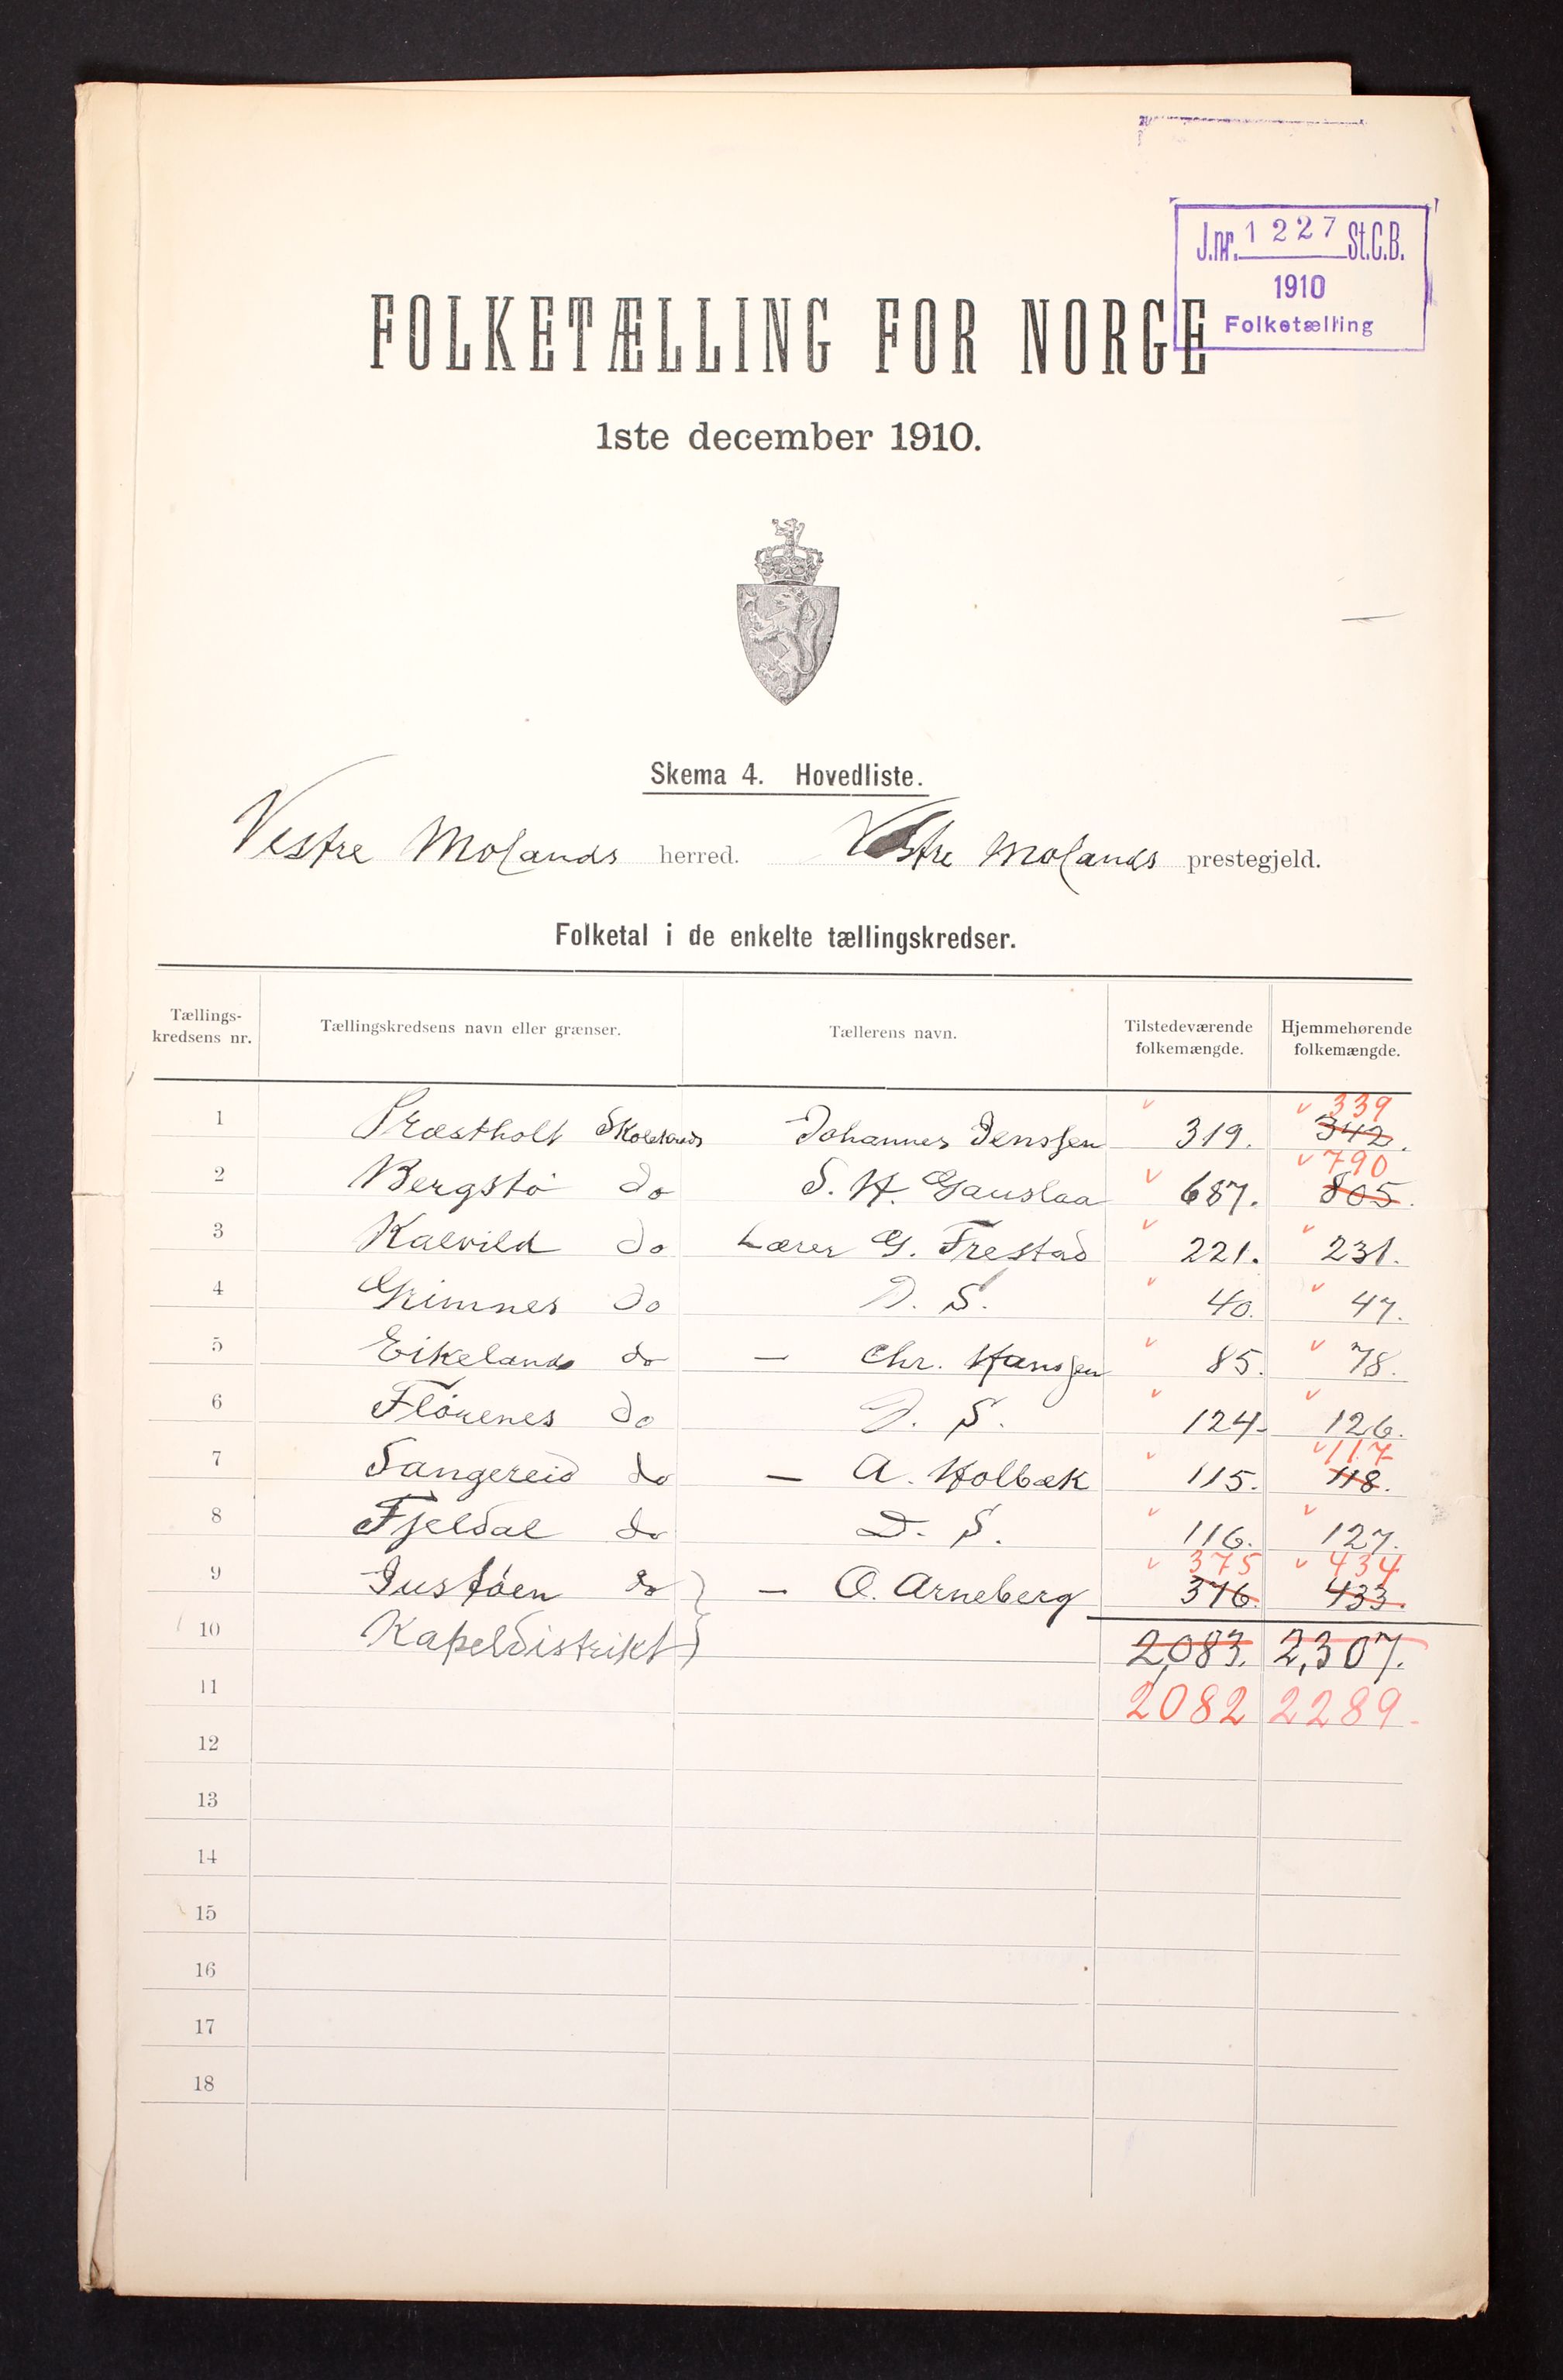 J.nr. 1227 St.C.B.
1910
Folketælling
FOLKETÆLLING FOR NORGE
1ste december 1910.
Skema 4. Hovedliste.
Vestre Molands herred. Vestre Molands prestegjeld.
Folketal i de enkelte tællingskredser.
Tællings-kredsens nr. Tællingskredsens navn eller grænser. Tællerens navn. Tilstedeværende folkemængde. Hjemmehørende folkemængde.
339
1 Præstholt Skolekreds Johannes Jenssen 319. 342.
790
2 Bergstø do S. H. Gauslaa 687. 805.
3 Kalvild do Lærer G. Frestad 221. 231.
4 Grimnes do D. S. 40. 47.
5 Eikelands do — Chr. Hanssen 85. 78.
6 Flørenes do D. S. 124. 126.
117
7 Sangereid do — A. Holbæk 115. 118.
8 Fjeldal do D. S. 116. 127.
375 434
9 Justøen do } — O. Arneberg 376. 433.
10 Kapeldistrikt } 2,083. 2,307.
11 2082 2289.
12
13
14
15
16
17
18